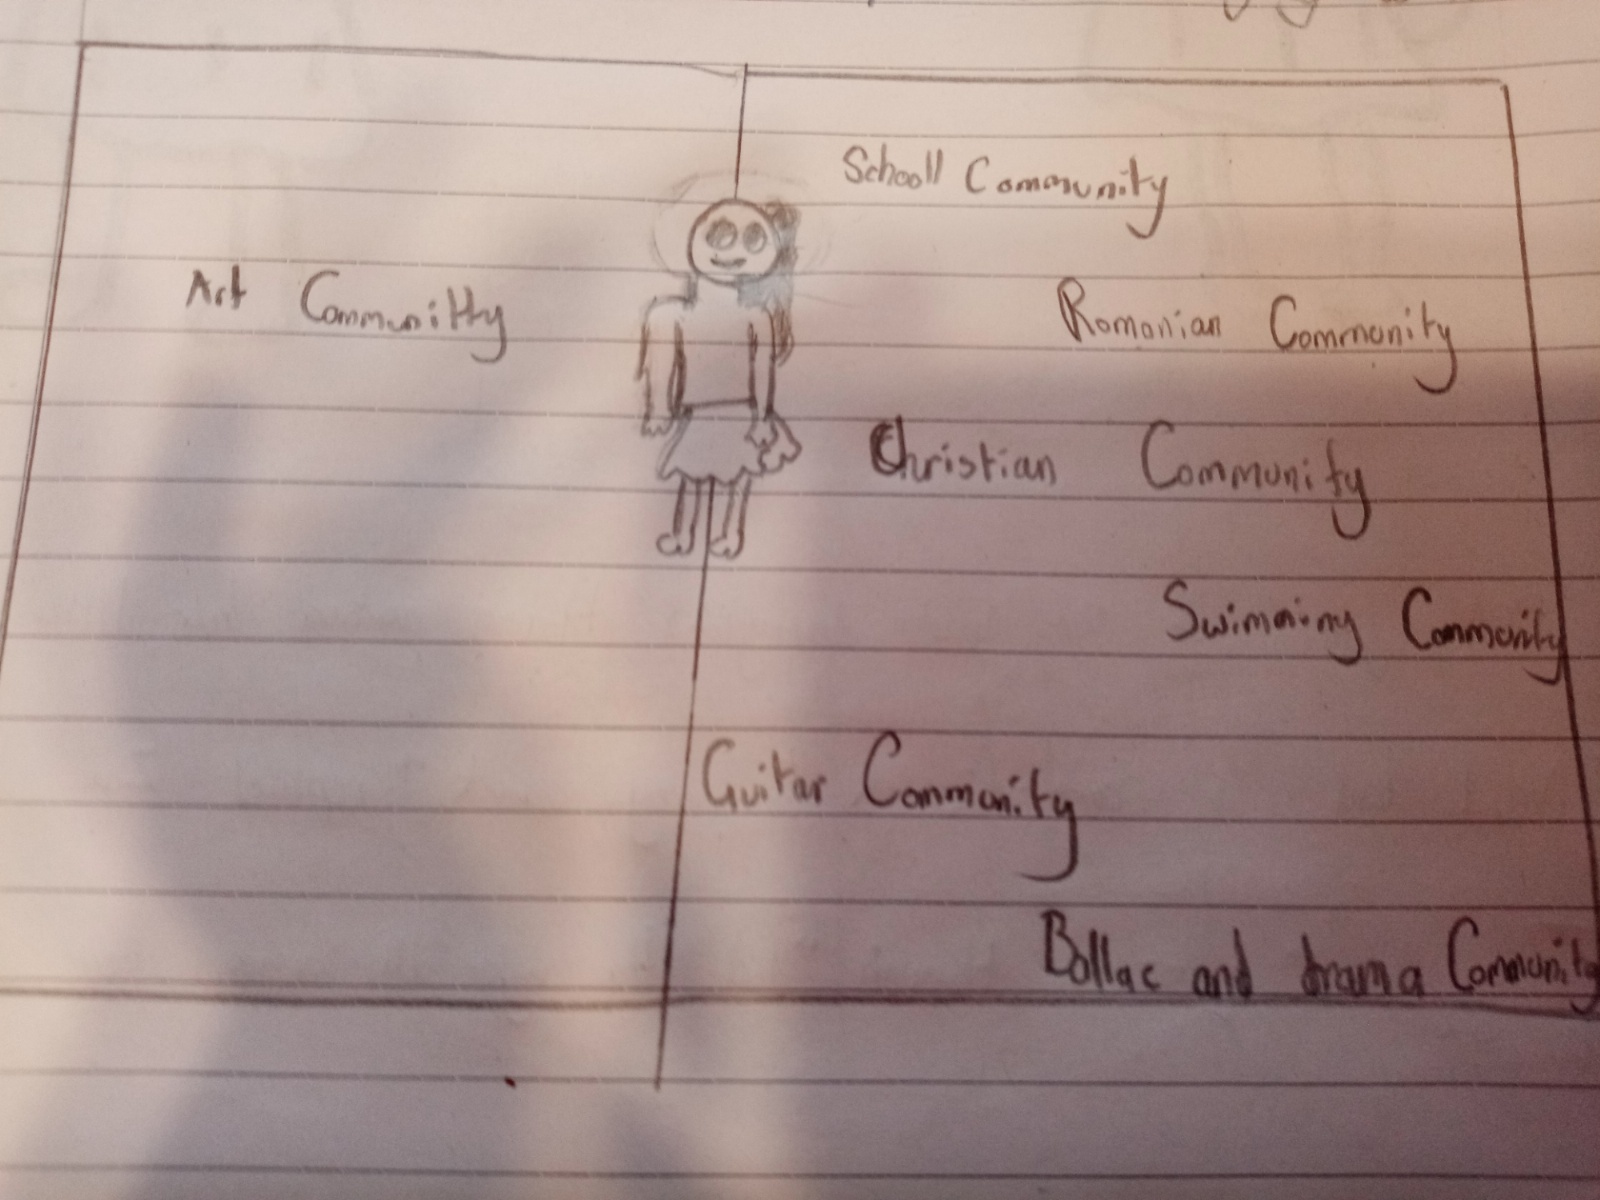 Schooll Community
Art Communitty
Romanian Community
Christian Community
Swimming Community
Guitar Community
Bollac and drama Community